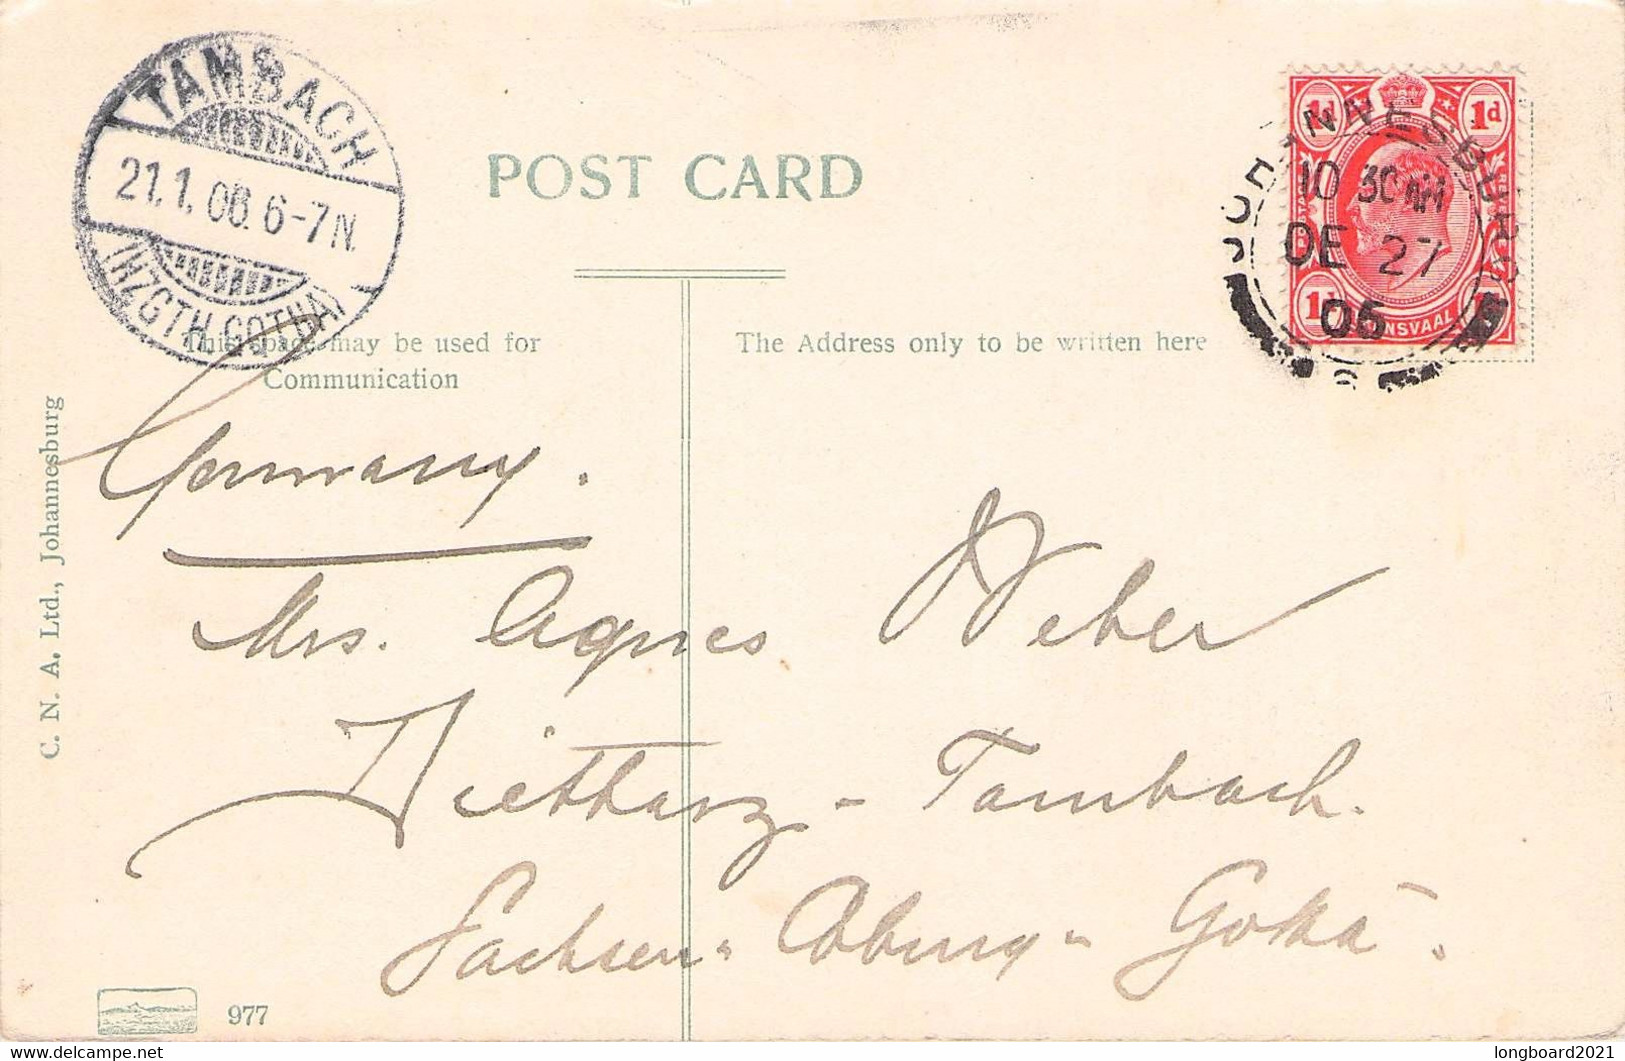 TAMBACH
21.1.06. 6-7 N.
(HZGTH. GOTHA)
POST CARD
JOHANNESBURG
10 30 AM
DE 27
05
1d 1d
TRANSVAAL
This space may be used for
Communication
The Address only to be written here
C. N. A. Ltd., Johannesburg
Germany.
Mrs. Agnes Weber
Dietharz - Tambach.
Sachsen - Coburg - Gotha.
977
longboard2021